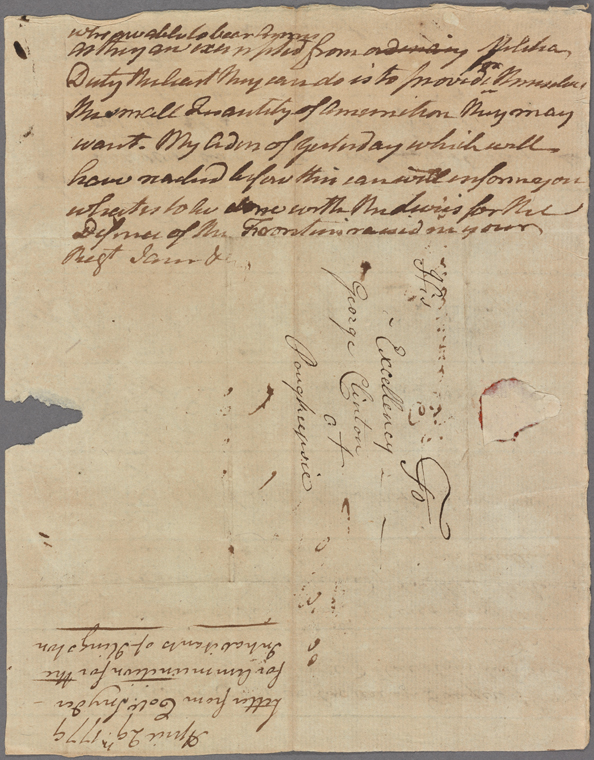 who are able to bear Arms
as they are exempted from ordenary Militia
Duty the least they can do is to provide themselves
for
the small Quantity of amenition they may
want. My Leter of yesterday which will
have reached before this can will informe you
what is to be done with the Levies for the
Defence of the Frontiers raised in your
Regt I am &c
To
His
Excellency
George Clinton
at
Poughkeepsie
April 29th. 1779
Letter from Coll. Snyder
for Ammunition for the
Inhabitants of Kingston